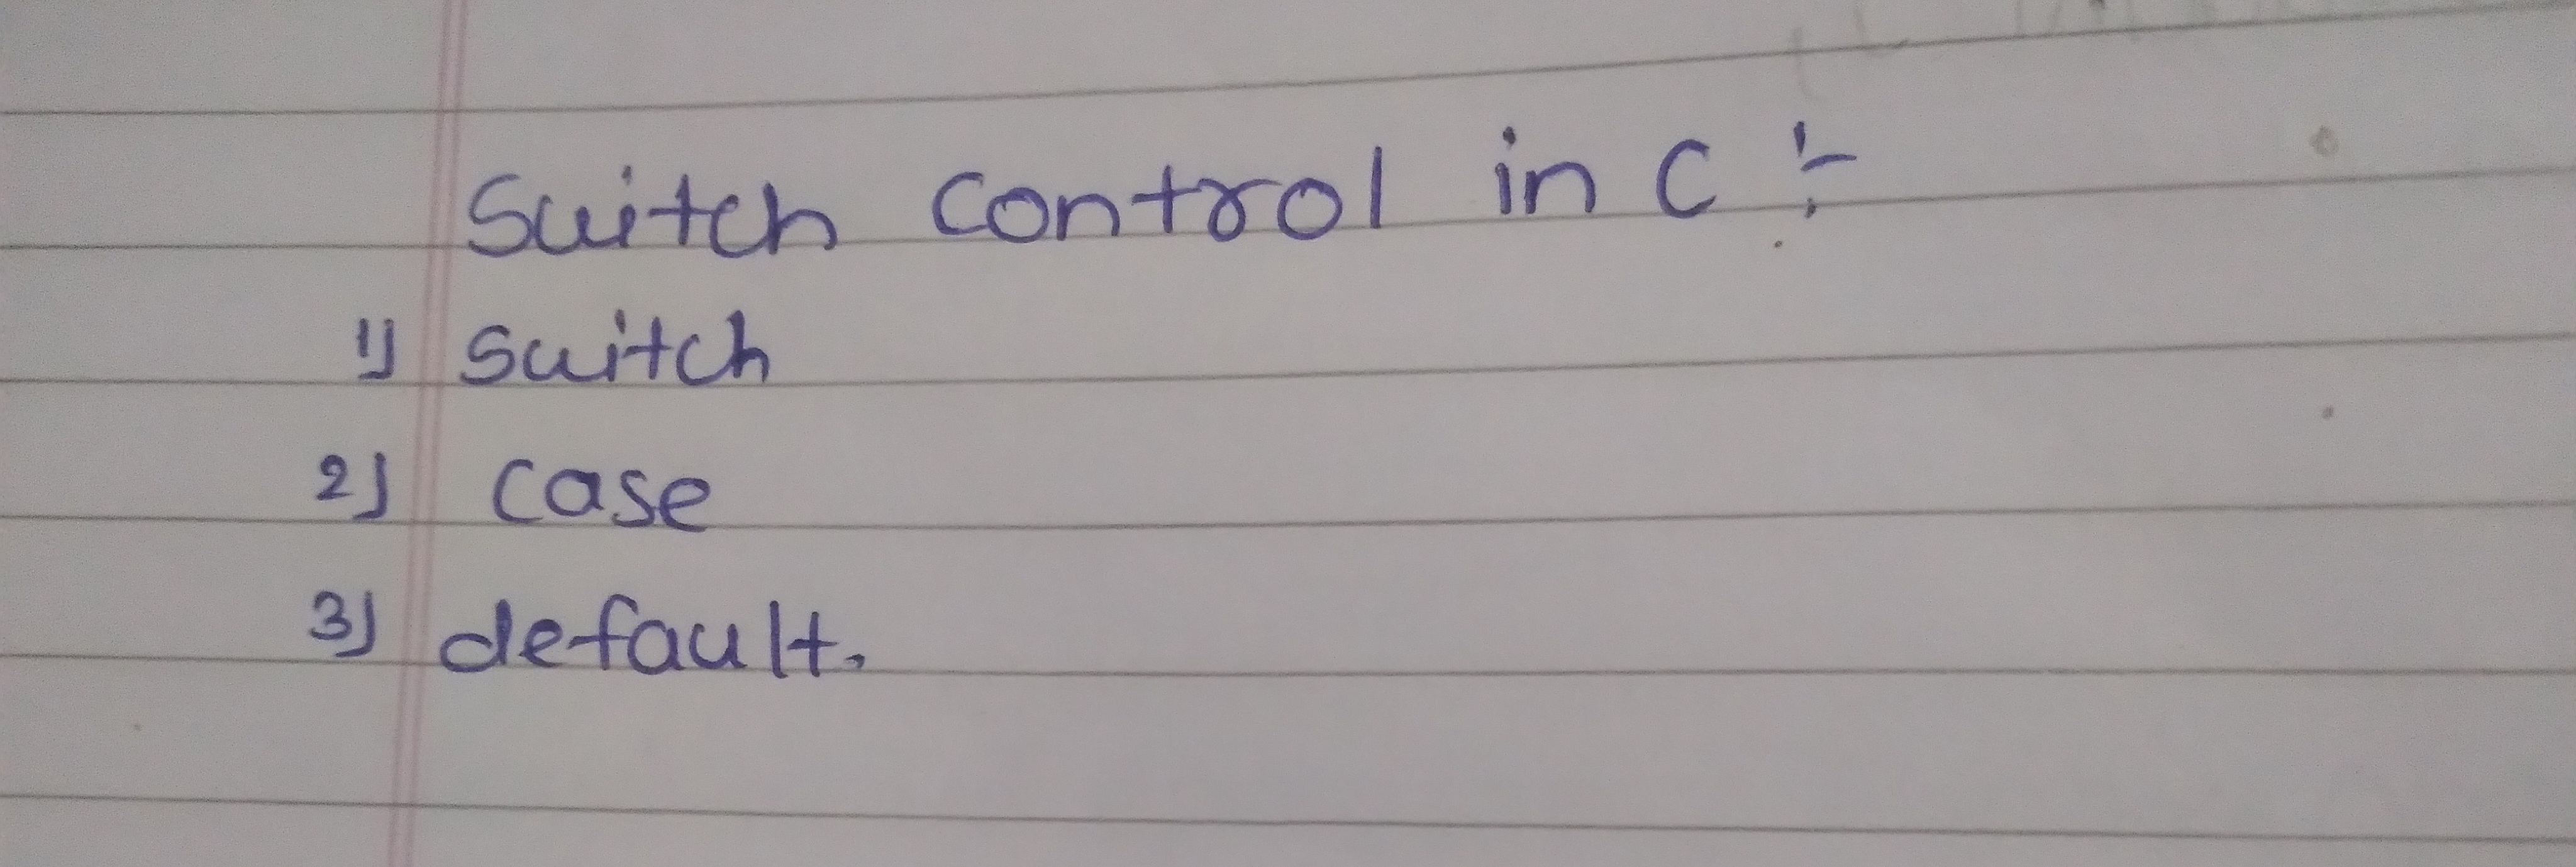 Switch control in C :-
1) switch
2) case
3) default.